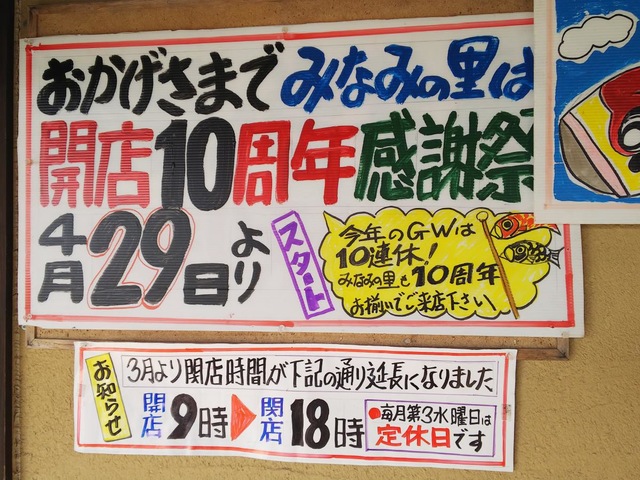 おかげさまで みなみの里は
開店10周年感謝祭
4月29日より
スタート
今年のGWは
10連休!
みなみの里も10周年
お揃いでご来店下さい
お知らせ
3月より閉店時間が下記の通り延長になりました
開店9時▶閉店18時
●毎月第3水曜日は
定休日です